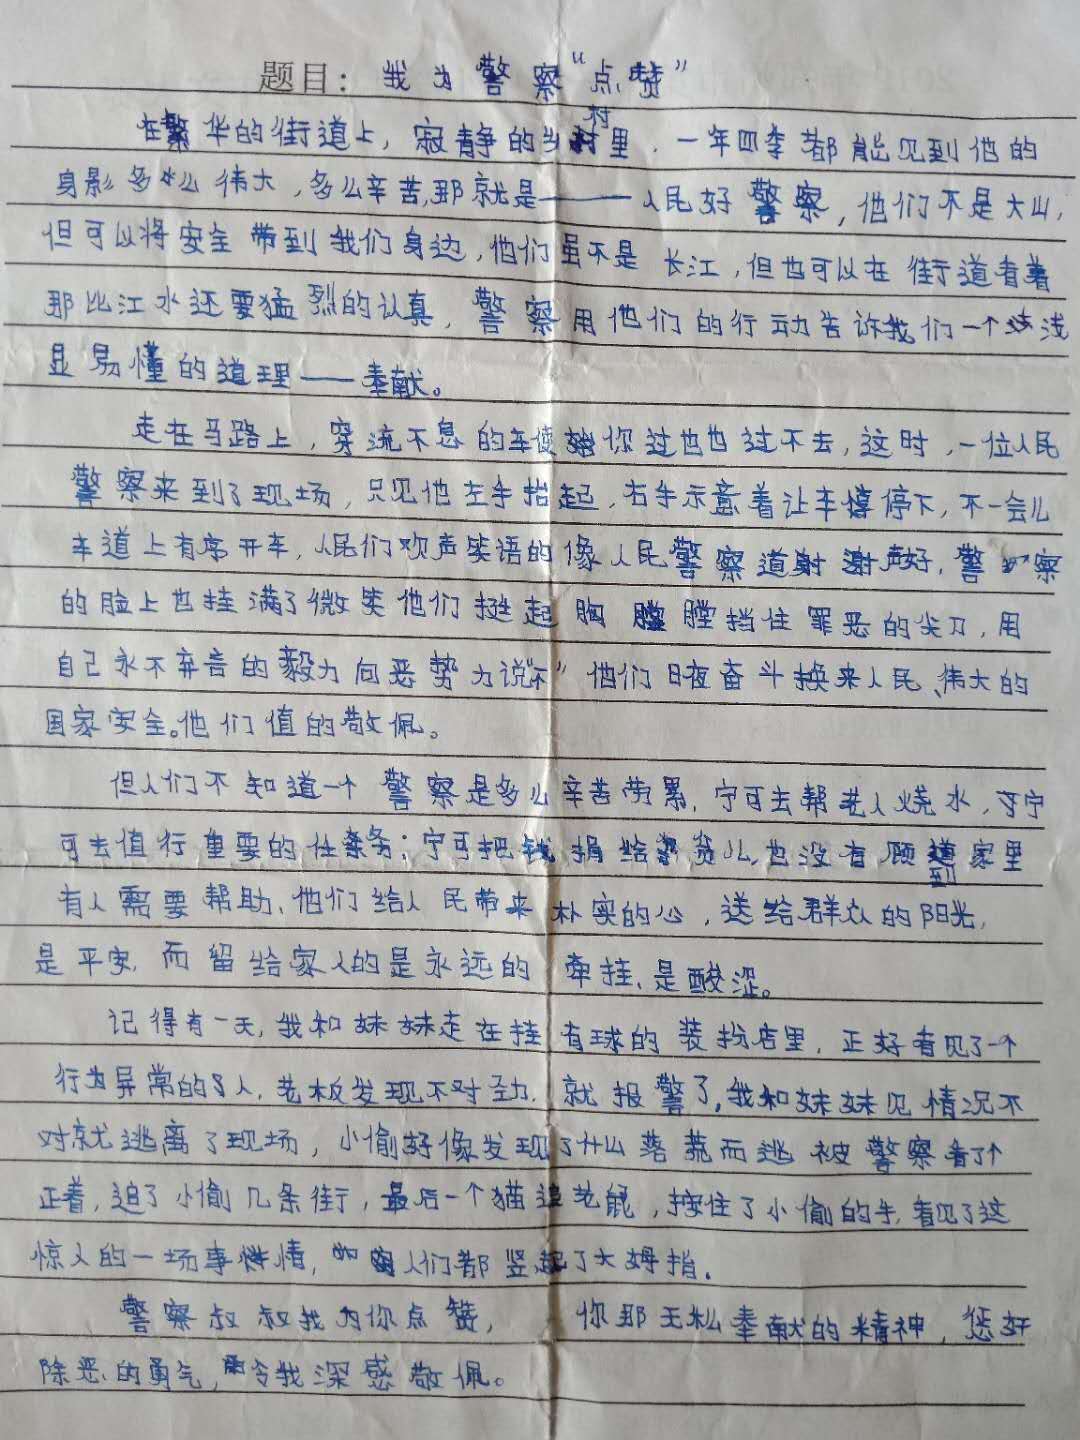 题目：我为警察“点赞”
在繁华的街道上，寂静的乡村里，一年四季都能见到他的
身影多么伟大，多么辛苦，那就是——人民好警察，他们不是大山，
但可以将安全带到我们身边，他们虽不是长江，但也可以在街道有着
那比江水还要猛烈的认真，警察用他们的行动告诉我们一个浅
显易懂的道理——奉献。
走在马路上，穿流不息的车使你过也也过不去，这时，一位人民
警察来到了现场，只见他左手抬起，右手示意着让车停下，不一会儿
车道上有序开车，人民们欢声笑语的像人民警察道谢声好，警察
的脸上也挂满了微笑他们挺起胸膛挡住罪恶的尖刀，用
自己永不弃言的毅力向恶势力说“不”他们日夜奋斗换来人民、伟大的
国家安全。他们值的敬佩。
但人们不知道一个警察是多么辛苦劳累，宁可去帮老人烧水，宁
可去值行重要的任务；宁可把钱捐给贫儿，也没有顾到家里
有人需要帮助、他们给人民带来朴实的心，送给群众的阳光，
是平安，而留给家人的是永远的牵挂、是酸涩。
记得有一天，我和妹妹走在挂有球的装扮店里，正好看见了一个
行为异常的人，老板发现不对劲，就报警了，我和妹妹见情况不
对就逃离了现场，小偷好像发现了什么落荒而逃被警察看了个
正着，追了小偷几条街，最后一个猫追老鼠，按住了小偷的手，看见了这
惊人的一场事情，人们都竖起了大姆指。
警察叔叔我为你点赞，你那无私奉献的精神，惩奸
除恶的勇气，令我深感敬佩。